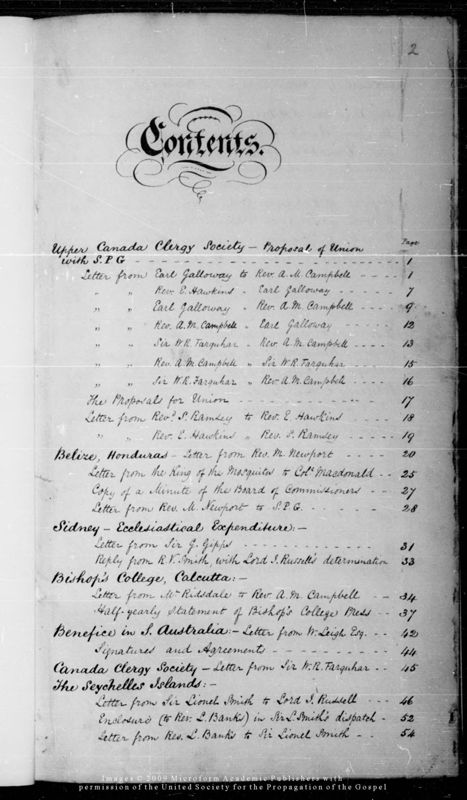 2
Contents.
Page
Upper Canada Clergy Society – Proposal of Union
with S.P.G - - - - - - 1
Letter from Earl Galloway to Rev. A. M. Campbell - - - 1
" " Rev. E. Hawkins - Earl Galloway - - - 7
" " Earl Galloway - Rev. A. M. Campbell - - 9
" " Rev. A. M. Campbell " Earl Galloway - - - 12
" " Sir W. R. Farquhar - Rev. A. M. Campbell - - 13
" " Rev. A. M. Campbell " Sir W. R. Farquhar - - 15
" " Sir W. R. Farquhar " Rev. A. M. Campbell - - 16
The Proposals for Union - - - - - - 17
Letter from Revd. S. Ramsey to Rev. E. Hawkins 18
" " Rev. E. Hawkins " Rev. S. Ramsey - - - 19
Belize, Honduras – Letter from Rev. M. Newport - - - 20
Letter from the King of the Mosquitos to Col. Macdonald - - 25
Copy of a Minute of the Board of Commissioners - - - 27
Letter from Rev. M. Newport to S.P.G. - - - - 28
Sidney – Ecclesiastical Expenditure: –
Letter from Sir G. Gipps - - - - - - 31
Reply from R. V. Smith, with Lord J. Russell's determination 33
Bishop's College, Calcutta: –
Letter from Mr Ridsdale to Rev. A. M. Campbell - - - 34
Half-yearly Statement of Bishop's College Press - - - 37
Benefice in S. Australia: – Letter from W. Leigh Esq. - - 42
Signatures and Agreements - - - - - - 44
Canada Clergy Society – Letter from Sir W. R. Farquhar - - 45
The Seychelles Islands: –
Letter from Sir Lionel Smith to Lord J. Russell - - 46
Enclosure (to Rev. L. Banks) in Sir L. Smith's dispatch - 52
Letter from Rev. L. Banks to Sir Lionel Smith - - 54
Images © 2009 Microform Academic Publishers with
permission of the United Society for the Propagation of the Gospel